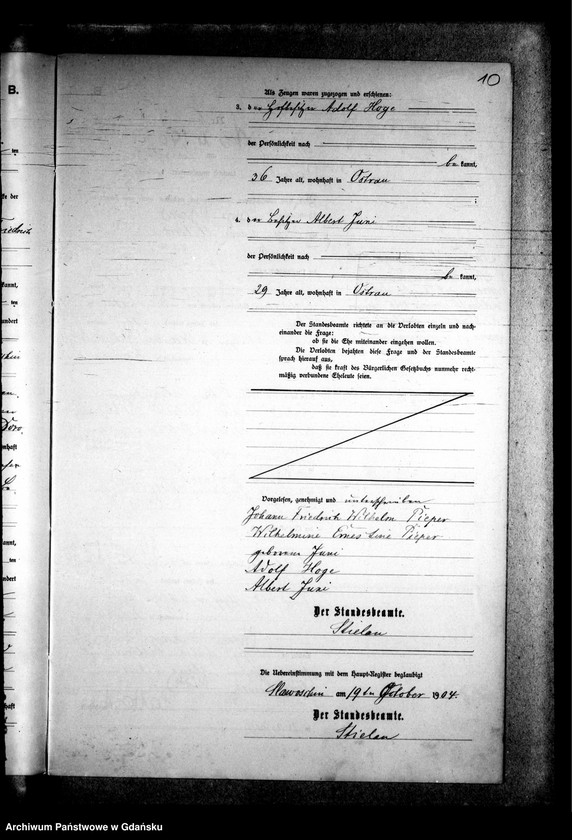 B.
10
Als Zeugen waren zugezogen und erschienen:
3. der Hofbesitzer Adolf Hoge
der Persönlichkeit nach
be kannt,
36 Jahre alt, wohnhaft in Ostrau
;
4. der Besitzer Albert Juni
der Persönlichkeit nach
be kannt,
29 Jahre alt, wohnhaft in Ostrau
Der Standesbeamte richtete an die Verlobten einzeln und nach-
einander die Frage:
ob sie die Ehe miteinander eingehen wollen.
Die Verlobten bejahten diese Frage und der Standesbeamte
sprach hierauf aus,
daß sie kraft des Bürgerlichen Gesetzbuchs nunmehr recht-
mäßig verbundene Eheleute seien.
Vorgelesen, genehmigt und unterschrieben
Johann Friedrich Wilhelm Pieper
Wilhelmine Ernestine Pieper
geborene Juni
Adolf Hoge
Albert Juni
Der Standesbeamte.
Stielau
Die Uebereinstimmung mit dem Haupt-Register beglaubigt
am 19ten Oktober 1904.
Der Standesbeamte.
Stielau
Archiwum Państwowe w Gdańsku